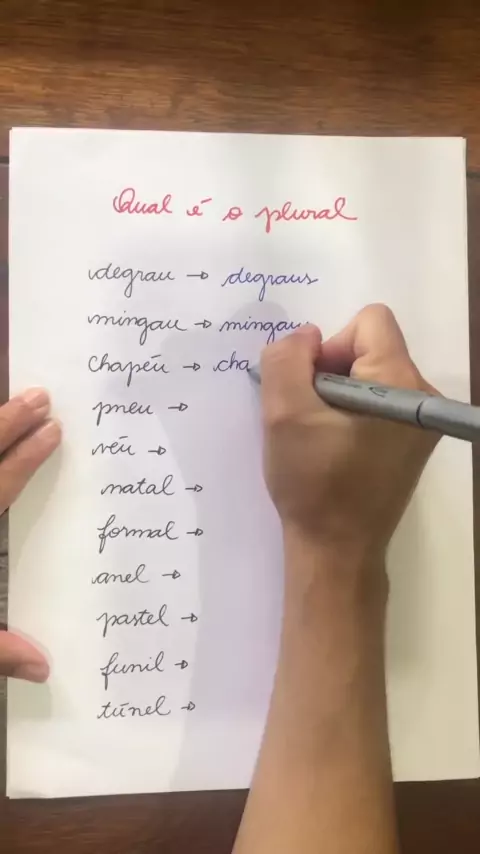 Qual é o plural
degrau → degraus
mingau → mingaus
chapéu → cha
pneu →
véu →
natal →
formal →
anel →
pastel →
funil →
túnel →